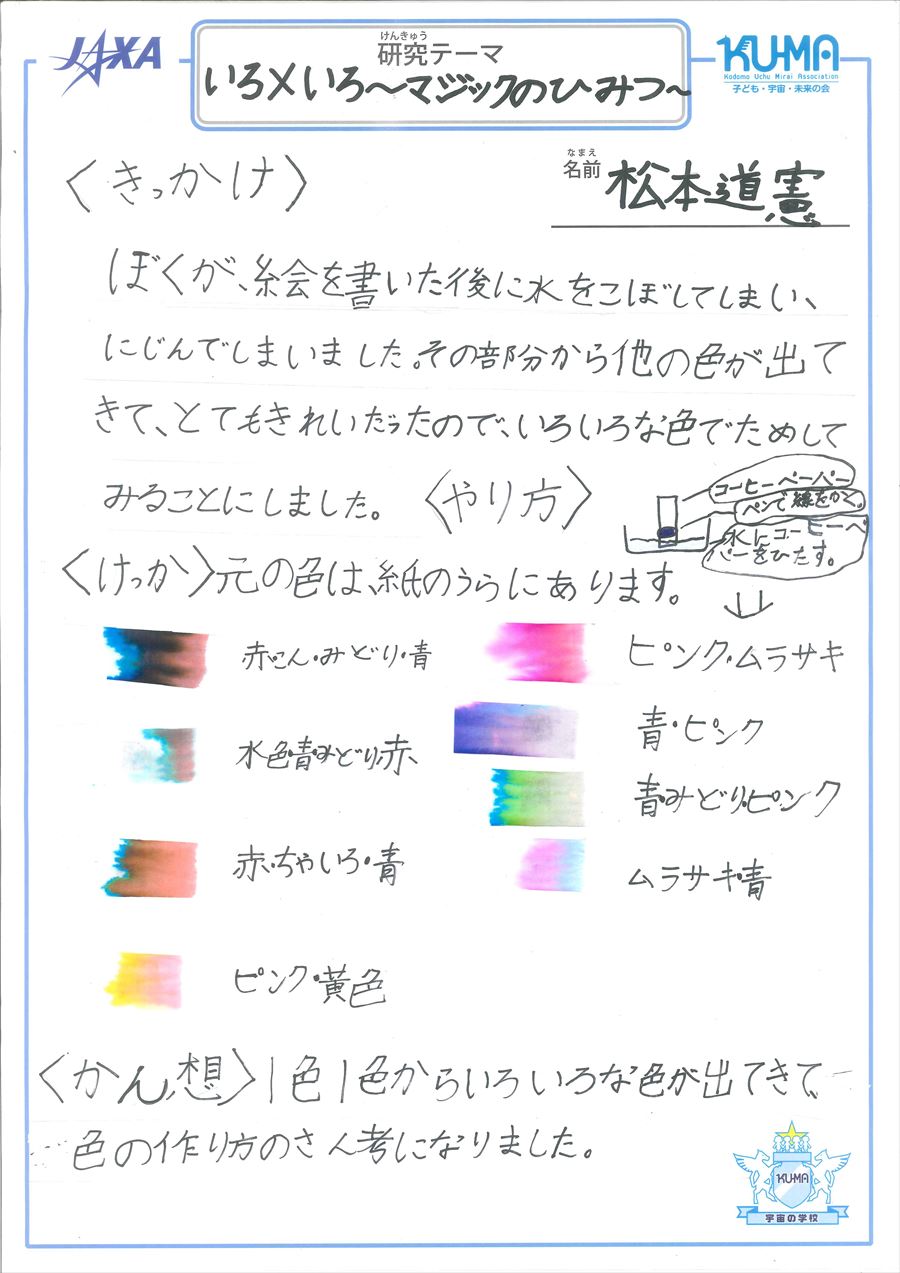 JAXA
けんきゅう
研究テーマ
いろ×いろ～マジックのひみつ～
KU-MA
Kodomo Uchu Mirai Association
子ども・宇宙・未来の会
〈きっかけ〉
なまえ
名前 松本道憲
ぼくが、絵会を書いた後に水をこぼしてしまい、
にじんでしまいました。その部分から他の色が出て
きて、とてもきれいだったので、いろいろな色でためして
みることにしました。〈やり方〉
コーヒーペーパー
ペンで線をかく。
水にコーヒーペー
パーをひたす。
〈けっか〉元の色は、紙のうらにあります。
赤・こん・みどり・青
ピンク・ムラサキ
水色・青・みどり・赤、
青・ピンク
青・みどり・ピンク
赤・ちゃいろ・青
ムラサキ・青
ピンク・黄色
〈かん想〉1色1色からいろいろな色が出てきて、
色の作り方のさん考になりました。
KU-MA
宇宙の学校